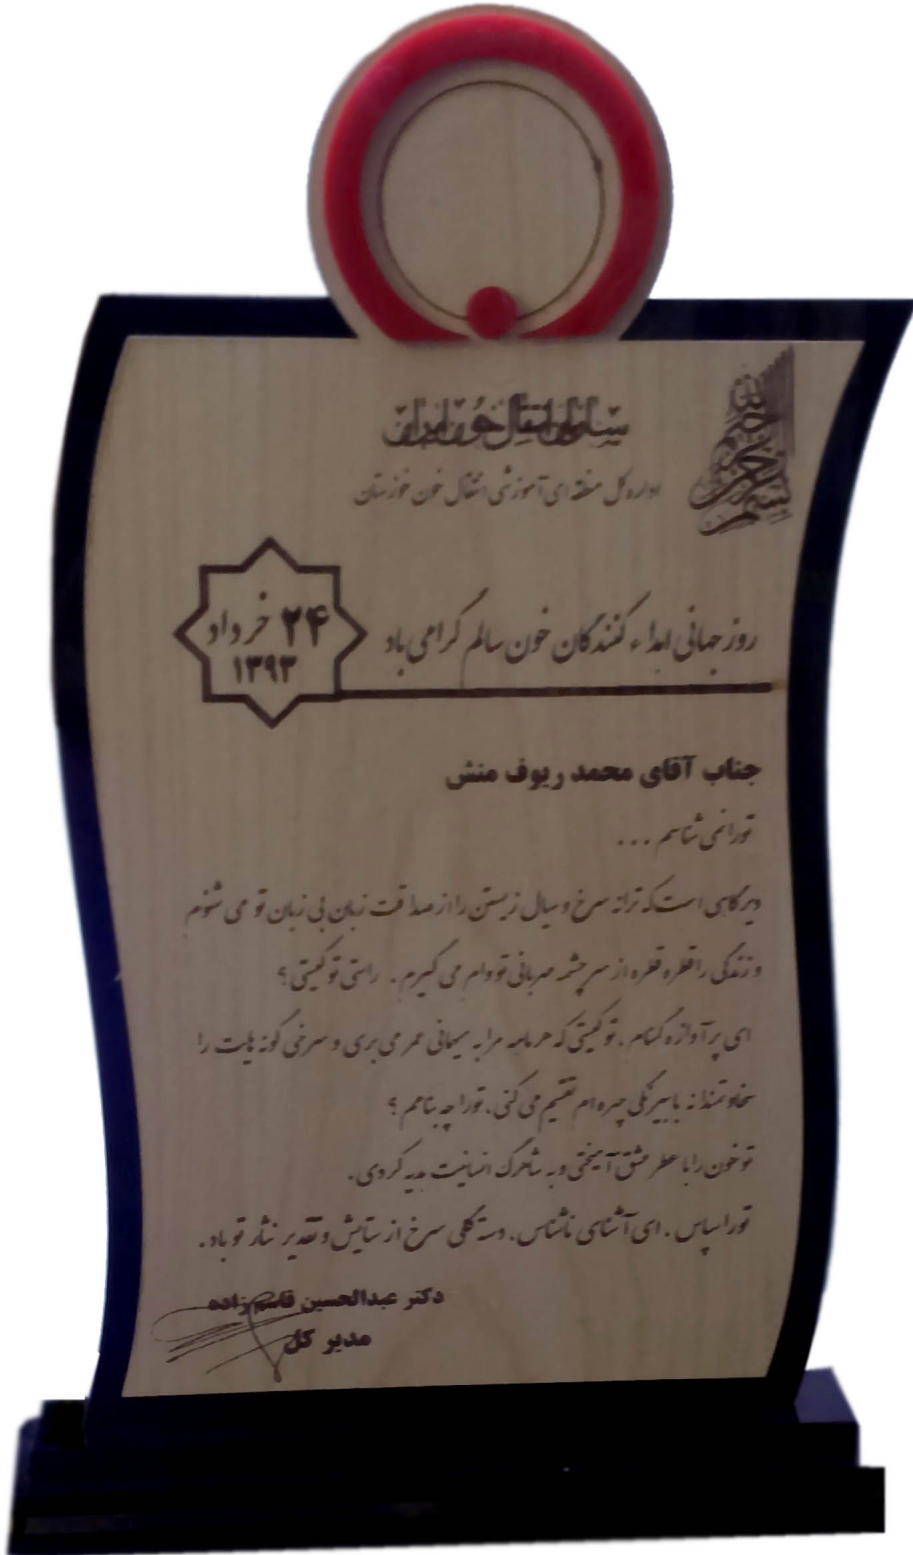 بسم الله الرحمن الرحیم
سازمان انتقال خون ایران
اداره کل منطقه ای آموزشی انتقال خون خوزستان
روز جهانی اهداء کنندگان خون سالم گرامی باد
۲۴ خرداد
۱۳۹۳
جناب آقای محمد ریوف منش
تو را نمی شناسم ...
دیرگاهی است که ترانه سرخ و سیال زیستن را از صداقت زبان بی زبان تو می شنوم
و زندگی را قطره قطره از سرچشمه مهربانی تو وام می گیرم. راستی تو کیستی؟
ای پرآوازه گمنام، تو کیستی که هر بامه مرا به میهمانی عمر می بری و سرخی گونه هایت را
سخاوتمندانه با بیرنگی چهره ام تقسیم می کنی، تو را چه بنامم؟
تو خون را با عطر عشق آمیختی و به شاهرگ انسانیت هدیه کردی.
تو را سپاس. ای آشنای ناشناس، دسته گلی سرخ از ستایش و تقدیر نثار تو باد.
دکتر عبدالحسین قاسم زاده
مدیر کل